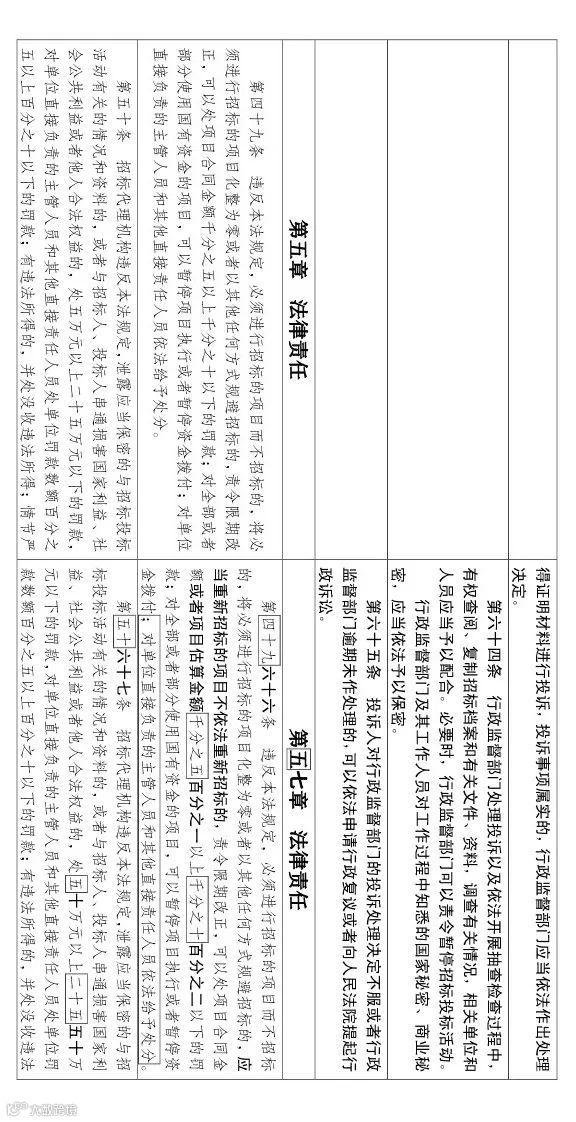 得证明材料进行投诉，投诉事项属实的，行政监督部门应当依法作出处理
决定。
第六十四条　行政监督部门处理投诉以及依法开展抽查检查过程中，
有权查阅、复制招标档案和有关文件、资料，调查有关情况，相关单位和
人员应当予以配合。必要时，行政监督部门可以责令暂停招标投标活动。
行政监督部门及其工作人员对工作过程中知悉的国家秘密、商业秘
密，应当依法予以保密。
第六十五条　投诉人对行政监督部门的投诉处理决定不服或者行政
监督部门逾期未作处理的，可以依法申请行政复议或者向人民法院提起行
政诉讼。
第五章　法律责任
第五七章　法律责任
第四十九条　违反本法规定，必须进行招标的项目而不招标的，将必
须进行招标的项目化整为零或者以其他任何方式规避招标的，责令限期改
正，可以处项目合同金额千分之五以上千分之十以下的罚款；对全部或者
部分使用国有资金的项目，可以暂停项目执行或者暂停资金拨付；对单位
直接负责的主管人员和其他直接责任人员依法给予处分。
第四十九六十六条　违反本法规定，必须进行招标的项目而不招标
的，将必须进行招标的项目化整为零或者以其他任何方式规避招标的，应
当重新招标的项目不依法重新招标的，责令限期改正，可以处项目合同金
额或者项目估算金额千分之五百分之一以上千分之十百分之二以下的罚
款；对全部或者部分使用国有资金的项目，可以暂停项目执行或者暂停资
金拨付；对单位直接负责的主管人员和其他直接责任人员依法给予处分。
第五十条　招标代理机构违反本法规定，泄露应当保密的与招标投标
活动有关的情况和资料的，或者与招标人、投标人串通损害国家利益、社
会公共利益或者他人合法权益的，处五万元以上二十五万元以下的罚款，
对单位直接负责的主管人员和其他直接责任人员处单位罚款数额百分之
五以上百分之十以下的罚款；有违法所得的，并处没收违法所得；情节严
第五十六十七条　招标代理机构违反本法规定，泄露应当保密的与招
标投标活动有关的情况和资料的，或者与招标人、投标人串通损害国家利
益、社会公共利益或者他人合法权益的，处五十万元以上二十五五十万
元以下的罚款，对单位直接负责的主管人员和其他直接责任人员处单位罚
款数额百分之五以上百分之十以下的罚款；有违法所得的，并处没收违法
大数跨境